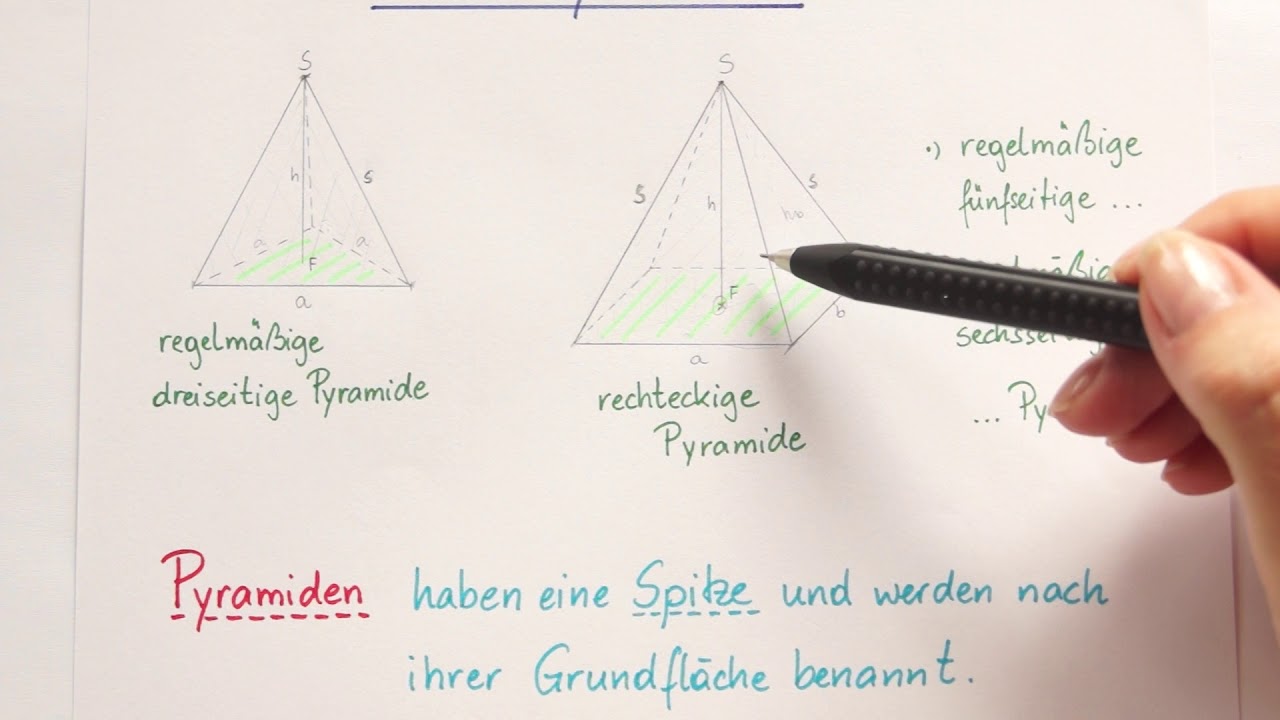 S
h
s
a
a
F
a
regelmäßige
dreiseitige Pyramide
S
s
s
h
F
b
a
rechteckige
Pyramide
.) regelmäßige
fünfseitige ...
...
Pyramiden haben eine Spitze und werden nach
ihrer Grundfläche benannt.